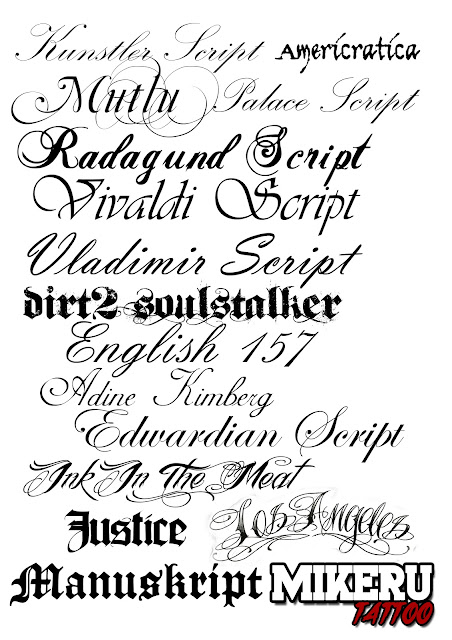 Kunstler Script Americratica
Mutlu Palace Script
Radagund Script
Vivaldi Script
Vladimir Script
dirt2 soulstalker
English 157
Adine Kirnberg
Edwardian Script
Ink In The Meat
Justice Los Angeles
Manuskript MIKERU
TATTOO